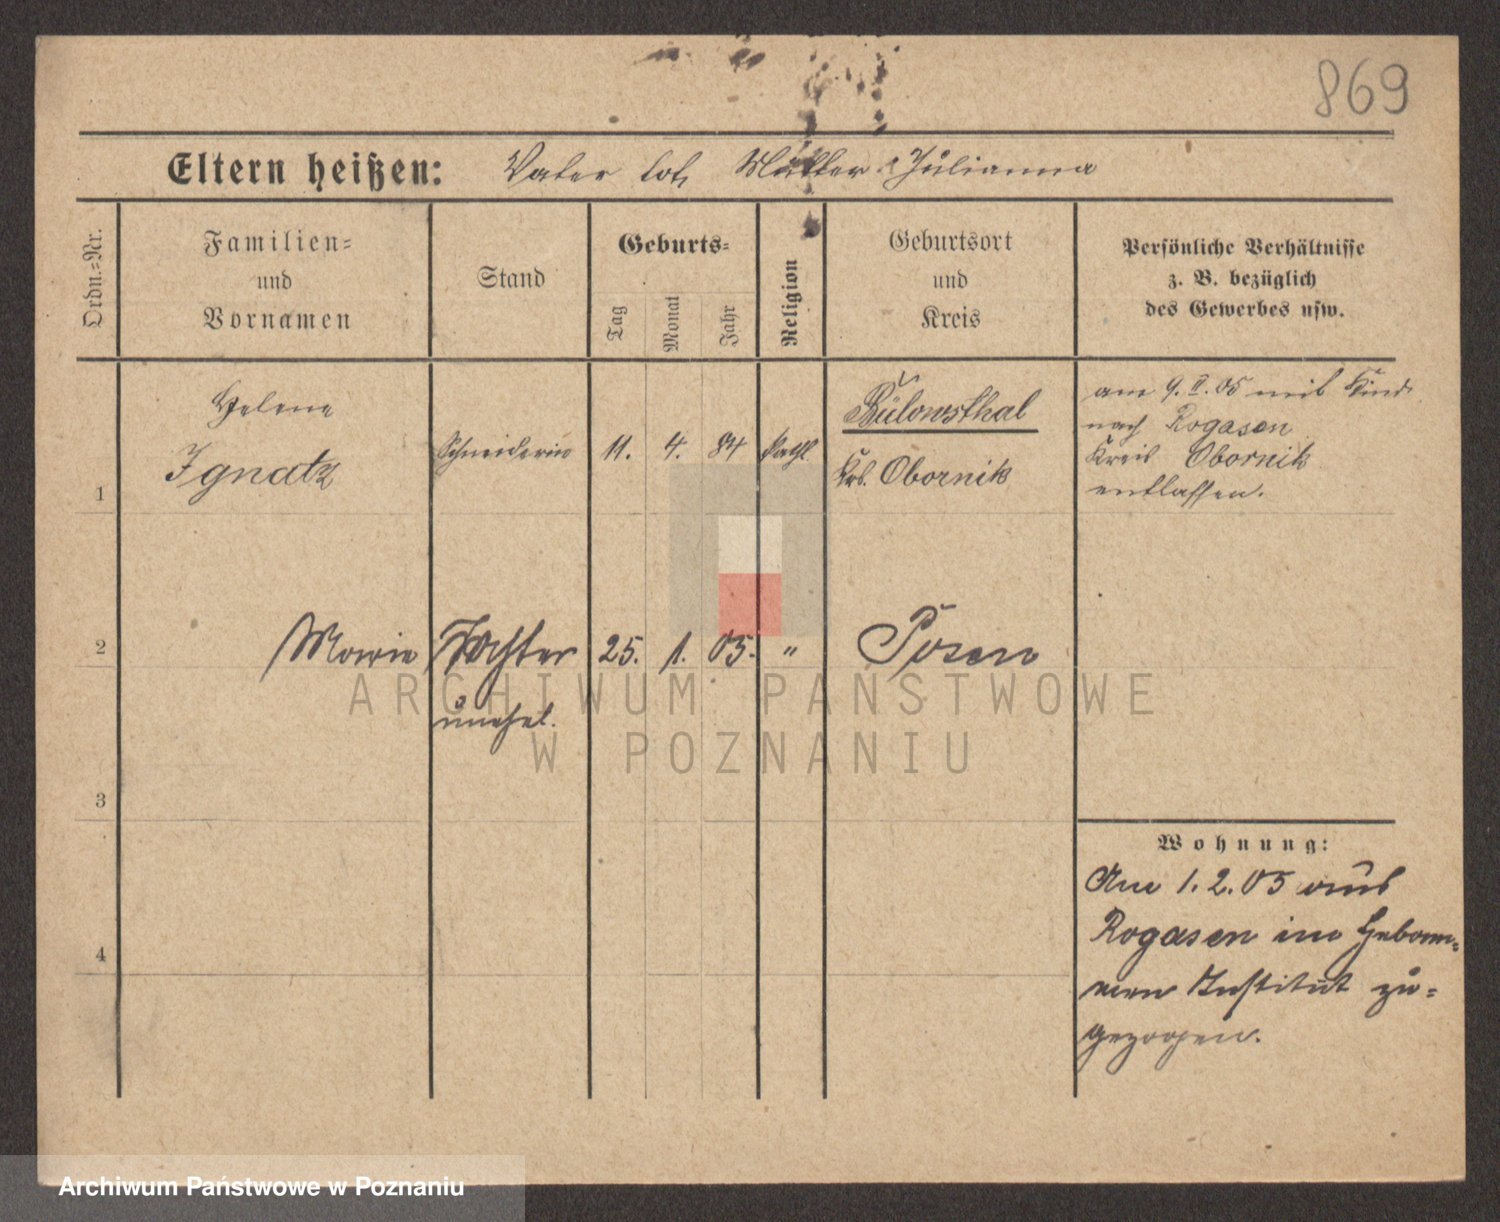 869
Eltern heißen: Vater tot, Mutter Julianna
Ordn.-Nr.
Familien-
und
Vornamen
Stand
Geburts-
Tag
Monat
Jahr
Religion
Geburtsort
und
Kreis
Persönliche Verhältnisse
z. B. bezüglich
des Gewerbes usw.
1
Helene
Ignatz
Schneiderin
11.
4.
84
kath.
Bülowsthal
Krs. Obornik
am 9. II. 05 mit Kind
nach Rogasen
Kreis Obornik
entlassen.
2
Marie
Tochter
unehel.
25.
1.
05.
"
Posen
3
4
Wohnung:
Am 1.2.05 aus
Rogasen im Hebam-
men Institut zu-
gezogen.
ARCHIWUM PAŃSTWOWE
W POZNANIU
Archiwum Państwowe w Poznaniu